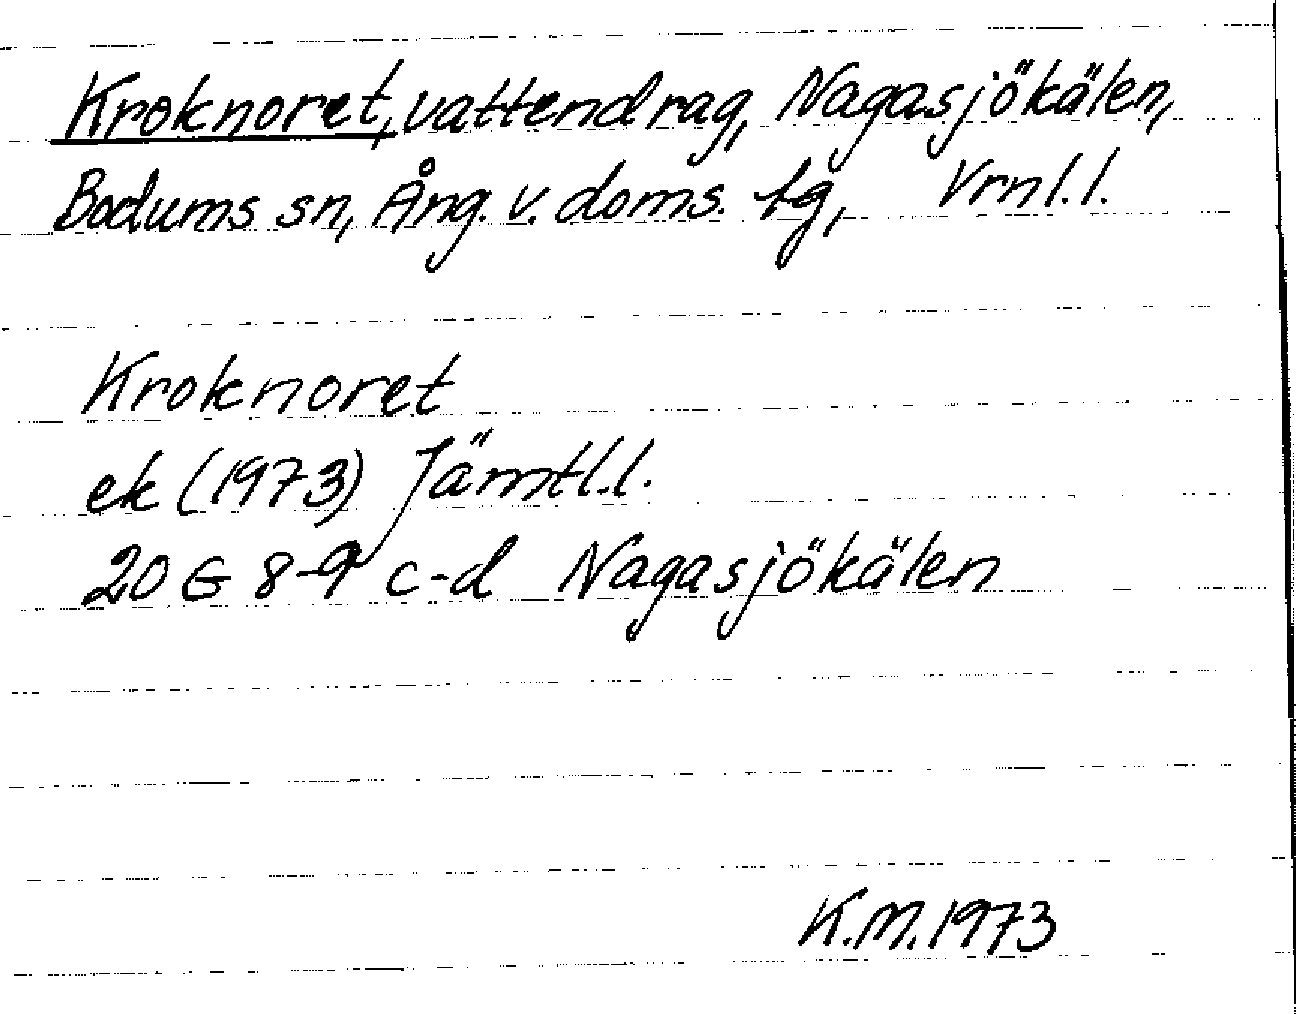 Kroknoret, vattendrag, Nagasjökälen,
Bodums sn, Ång. v. doms. tg, Vrnl.l.
Kroknoret
ek (1973) Jämtl.l.
20 G 8-9 c-d Nagasjökälen
K.M. 1973